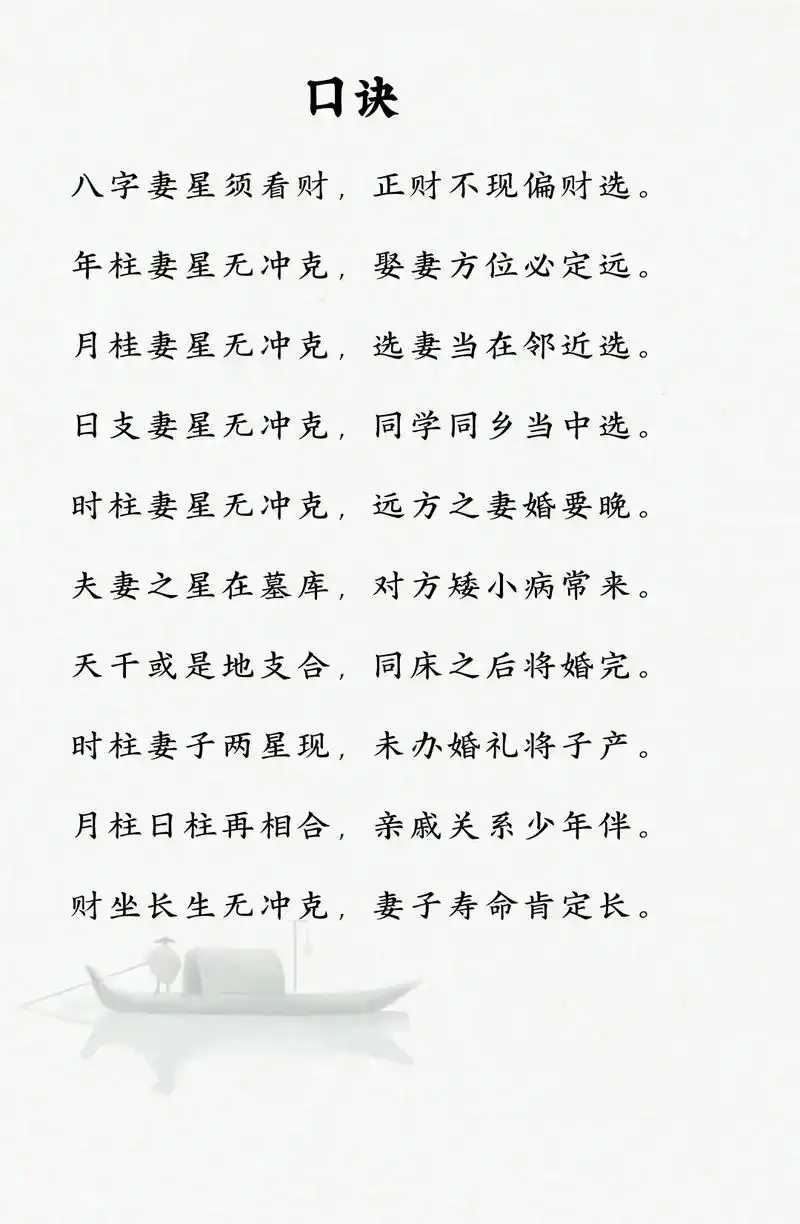 口诀
八字妻星须看财，正财不现偏财选。
年柱妻星无冲克，娶妻方位必定远。
月桂妻星无冲克，选妻当在邻近选。
日支妻星无冲克，同学同乡当中选。
时柱妻星无冲克，远方之妻婚要晚。
夫妻之星在墓库，对方矮小病常来。
天干或是地支合，同床之后将婚完。
时柱妻子两星现，未办婚礼将子产。
月柱日柱再相合，亲戚关系少年伴。
财坐长生无冲克，妻子寿命肯定长。